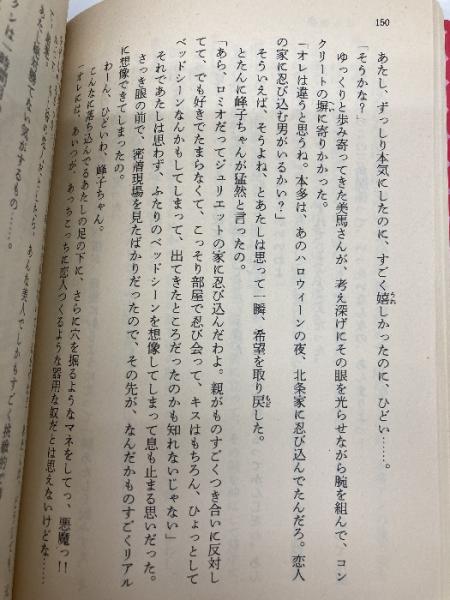 150
あたし、ずっしり本気にしたのに、すごく嬉しかったのに、ひどい……。
「そうかな？」
ゆっくりと歩み寄ってきた美馬さんが、考え深げにその眼を光らせながら腕を組んで、コン
クリートの塀に寄りかかった。
「オレは違うと思うね。本多は、あのハロウィーンの夜、北条家に忍び込んでたんだろ。恋人
の家に忍び込む男がいるかい？」
そういえば、そうよね、とあたしは思って一瞬、希望を取り戻した。
とたんに峰子ちゃんが猛然と言ったの。
「あら、ロミオだってジュリエットの家に忍び込んだわよ。親がものすごくつき合いに反対し
てて、でも好きでたまらなくて、こっそり部屋で忍び会って、キスはもちろん、ひょっとして
ベッドシーンなんかもしてしまって、出てきたところだったのかも知れないじゃない」
それであたしは思わず、ふたりのベッドシーンを想像してしまって息も止まる思いだった。
さっき眼の前で、密着現場を見たばかりだったので、その先が、なんだかものすごくリアル
に想像できてしまったの。
わーん、ひどいわ、峰子ちゃん。
こんなに落ち込んでるあたしの足の下に、さらに穴を掘るようなマネをしてっ、悪魔っ!!
「オレには、あいつが、あっちこっちに恋人つくるような器用な奴だとは思えないけどな……